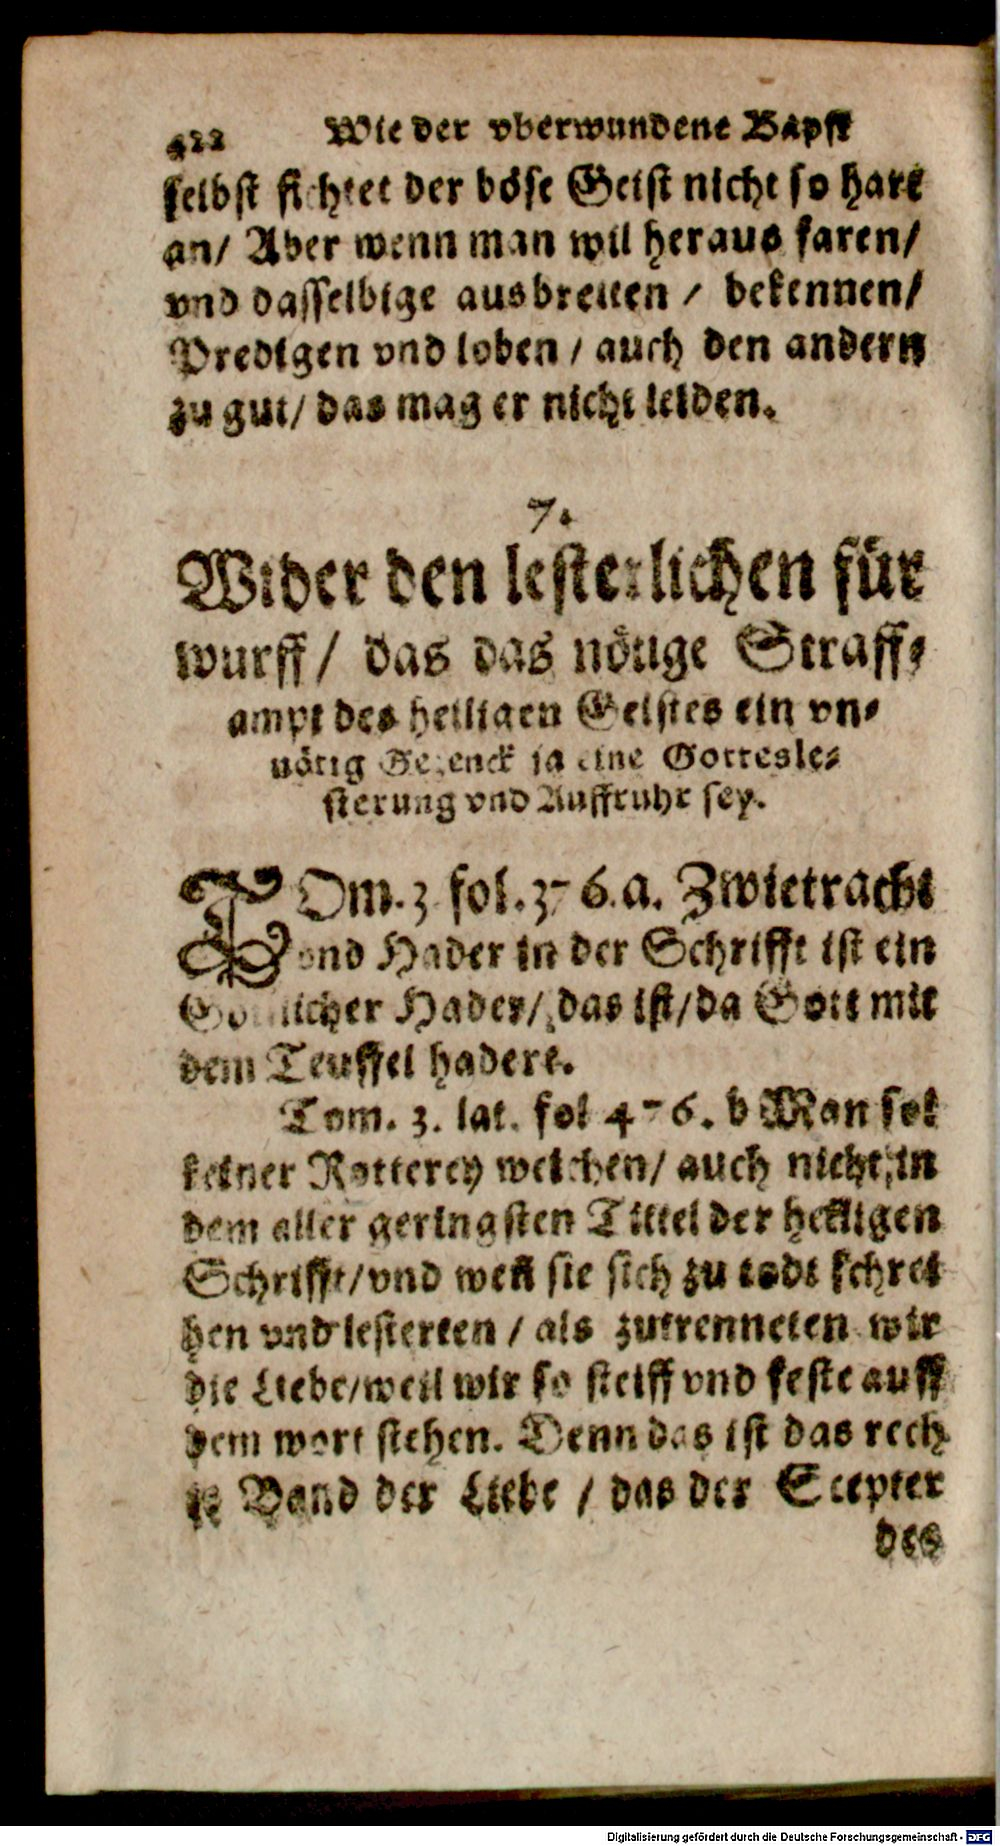 422 Wie der vberwundene Bapst
selbst fichtet der böse Geist nicht so hart
an/ Aber wenn man wil heraus faren/
vnd dasselbige ausbreiten / bekennen/
Predigen vnd loben / auch den andern
zu gut/ das mag er nicht leiden.
7.
Wider den lesterlichen für
wurff/ das das nötige Straff⸗
ampt des heiligen Geistes ein vn⸗
nötig Gezenck ja eine Gottesle⸗
sterung vnd Auffruhr sey.
TOm. 3. fol. 376. a. Zwietracht
vnd Hader in der Schrifft ist ein
Göttlicher Hader/ das ist/ da Gott mit
dem Teuffel hadert.
Tom. 3. lat. fol 476. b Man sol
keiner Rotterey weichen/ auch nicht in
dem aller geringsten Tittel der heiligen
Schrifft/ vnd wen sie sich zu todt schrei
hen vnd lesterten / als zutrenneten wir
die Liebe/ weil wir so steiff vnd feste auff
dem wort stehen. Denn das ist das rech
te Band der Liebe / das der Scepter
des
Digitalisierung gefördert durch die Deutsche Forschungsgemeinschaft - DFG